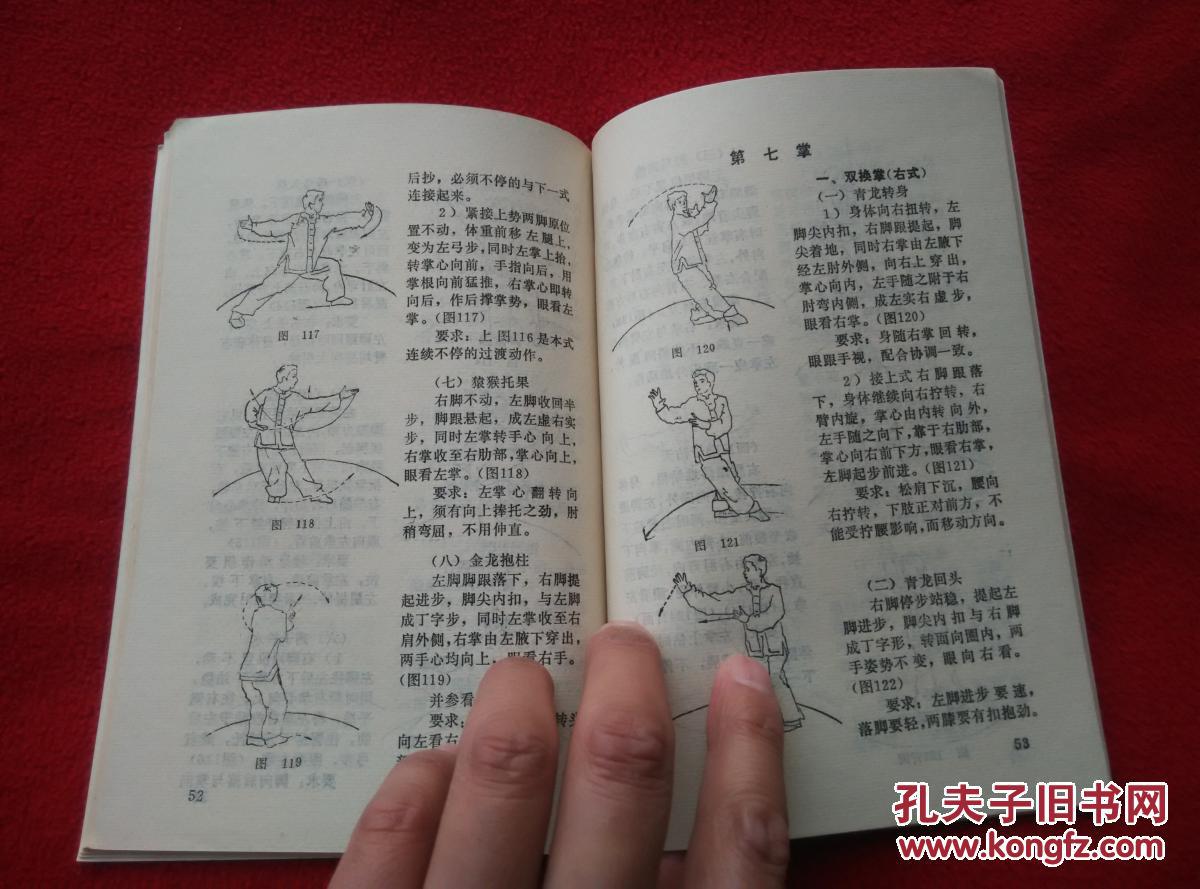 后抄，必须不停的与下一式
连接起来。
2）紧接上势两脚原位
置不动，体重前移左腿上，
变为左弓步，同时左掌上抬，
转掌心向前，手指向后，用
掌根向前猛推，右掌心即转
向后，作后撑掌势，眼看左
掌。（图117）
要求：上图116是本式
连续不停的过渡动作。
图 117
（七）猿猴托果
右脚不动，左脚收回半
步，脚跟悬起，成左虚右实
步，同时左掌转手心向上，
右掌收至右肋部，掌心向上，
眼看左掌。（图118）
要求：左掌心翻转向
上，须有向上捧托之劲，肘
稍弯屈，不用伸直。
图 118
（八）金龙抱柱
左脚脚跟落下，右脚提
起进步，脚尖内扣，与左脚
成丁字步，同时左掌收至右
肩外侧，右掌由左腋下穿出，
两手心均向上，眼看右手。
（图119）
并参看
要求：
转头
向左看右
图 119
52
第七掌
一、双换掌（右式）
（一）青龙转身
1）身体向右扭转，左
脚尖内扣，右脚跟提起，脚
尖着地，同时右掌由左腋下
经左肘外侧，向右上穿出，
掌心向内，左手随之附于右
肘弯内侧，成左实右虚步，
眼看右掌。（图120）
要求：身随右掌回转，
眼跟手视，配合协调一致。
图 120
2）接上式右脚跟落
下，身体继续向右拧转，右
臂内旋，掌心由内转向外，
左手随之向下，靠于右肋部，
掌心向右前下方，眼看右掌，
左脚起步前进。（图121）
要求：松肩下沉，腰向
右拧转，下肢正对前方，不
能受拧腰影响，而移动方向。
图 121
（二）青龙回头
右脚停步站稳，提起左
脚进步，脚尖内扣与右脚
成丁字形，转面向圈内，两
手姿势不变，眼向右看。
（图122）
要求：左脚进步要速，
落脚要轻，两膝要有扣抱劲。
53
孔夫子旧书网
www.kongfz.com